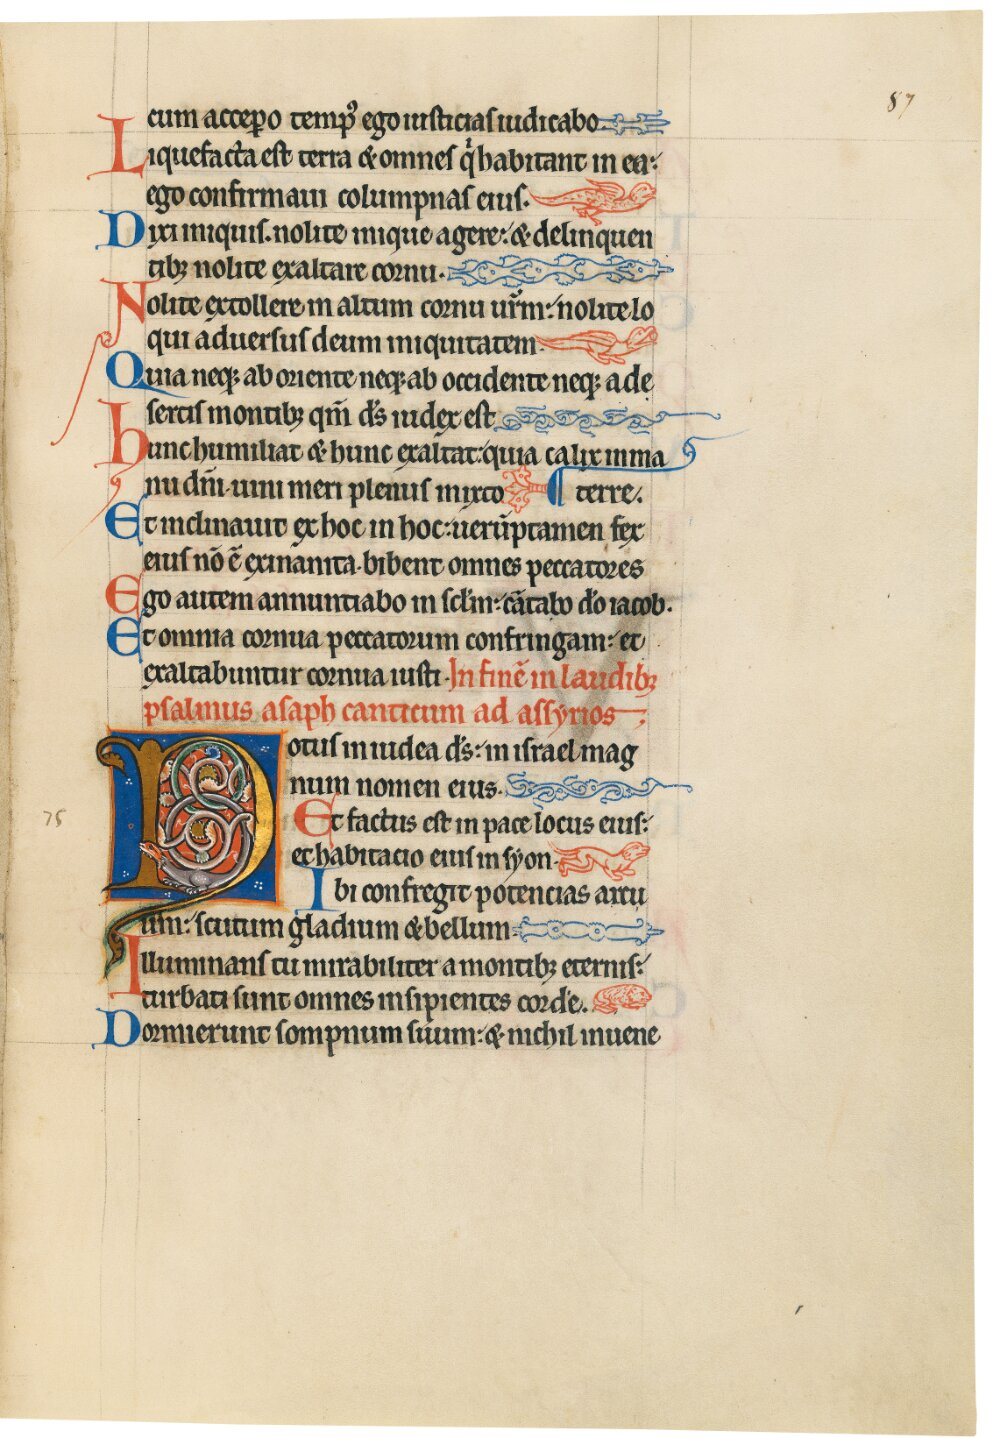 87
cum accepo temp⁹ ego iusticias iudicabo
Liquefacta est terra & omnes q̇ habitant in ea:
ego confirmaui columpnas eius.
Dixi iniquis. nolite inique agere: & delinquen
tibȝ nolite exaltare cornu.
Nolite extollere in altum cornu ur̄m: nolite lo
qui aduersus deum iniquitatem.
Quia neqȝ ab oriente neqȝ ab occidente neqȝ a de
sertis montibȝ qm̄ ds̄ iudex est
hunc humiliat & hunc exaltat: quia calix in ma
nu dm̄i uini meri plenus mixto ¶ terre.
Et inclinauit ex hoc in hoc: uerūptamen fex
eius nō ē exinanita. bibent omnes peccatores
Ego autem annuntiabo in sclm̄: cātabo do iacob.
Et omnia cornua peccatorum confringam: et
exaltabuntur cornua iusti. In finē in laudibȝ
psalmus asaph canticum ad assyrios
Notus in iudea ds̄: in israel mag
num nomen eius.
75
Et factus est in pace locus eius:
et habitacio eius in syon.
Ibi confregit potencias arcu
um: scutum gladium & bellum.
Illuminans tu mirabiliter a montibȝ eternis:
turbati sunt omnes insipientes corde.
Dormierunt sompnum suum: & nichil inuene